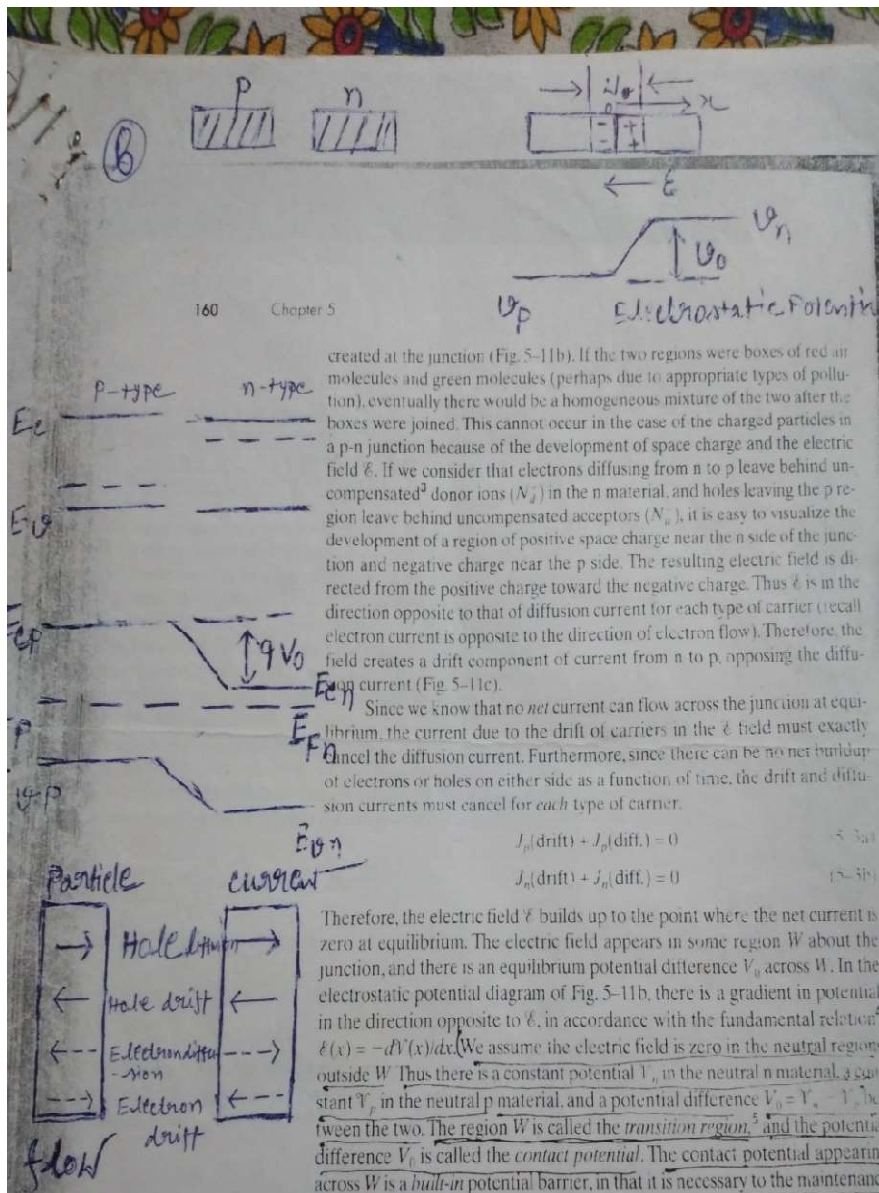 p n
W₀
0
x
- +
- +
b
← ℰ
V_n
V₀
V_p Electrostatic Potentia
160 Chapter 5
P-type n-type
E_c
E_v
E_cp
qV₀
E_cn
E_Fn
E_vn
Particle Current
Hole diffusion
Hole drift
Electron diffu
-sion
Electron
drift
flow
created at the junction (Fig. 5–11b). If the two regions were boxes of red air
molecules and green molecules (perhaps due to appropriate types of pollu-
tion), eventually there would be a homogeneous mixture of the two after the
boxes were joined. This cannot occur in the case of the charged particles in
a p-n junction because of the development of space charge and the electric
field ℰ. If we consider that electrons diffusing from n to p leave behind un-
compensated³ donor ions (N_d⁺) in the n material, and holes leaving the p re-
gion leave behind uncompensated acceptors (N_a⁻), it is easy to visualize the
development of a region of positive space charge near the n side of the junc-
tion and negative charge near the p side. The resulting electric field is di-
rected from the positive charge toward the negative charge. Thus ℰ is in the
direction opposite to that of diffusion current for each type of carrier (recall
electron current is opposite to the direction of electron flow). Therefore, the
field creates a drift component of current from n to p, opposing the diffu-
sion current (Fig. 5–11c).
Since we know that no net current can flow across the junction at equi-
librium, the current due to the drift of carriers in the ℰ field must exactly
cancel the diffusion current. Furthermore, since there can be no net buildup
of electrons or holes on either side as a function of time, the drift and diffu-
sion currents must cancel for each type of carrier.
J_p(drift) + J_p(diff.) = 0 (5–3a)
J_n(drift) + J_n(diff.) = 0 (5–3b)
Therefore, the electric field ℰ builds up to the point where the net current is
zero at equilibrium. The electric field appears in some region W about the
junction, and there is an equilibrium potential difference V₀ across W. In the
electrostatic potential diagram of Fig. 5–11b, there is a gradient in potential
in the direction opposite to ℰ, in accordance with the fundamental relation⁴
ℰ(x) = −dV(x)/dx. (We assume the electric field is zero in the neutral regions
outside W. Thus there is a constant potential V_n in the neutral n material, a con
stant V_p in the neutral p material, and a potential difference V₀ = V_n − V_p be
tween the two. The region W is called the transition region,⁵ and the potentia
difference V₀ is called the contact potential. The contact potential appearin
across W is a built-in potential barrier, in that it is necessary to the maintenanc